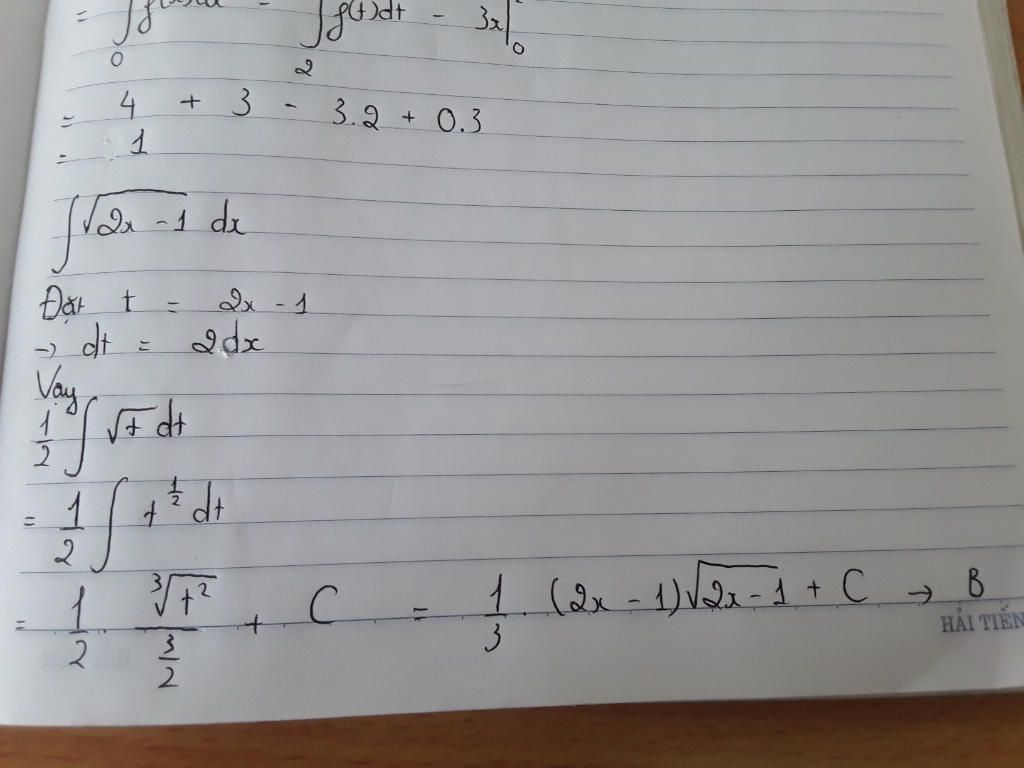 = ∫₀ f(x)dx - ∫₂ f(t)dt - 3x|₀²
= 4 + 3 - 3.2 + 0.3
= 1
∫√(2x - 1) dx
Đặt t = 2x - 1
→ dt = 2dx
Vậy
1/2 ∫ √t dt
= 1/2 ∫ t^(1/2) dt
= 1/2 . ∛(t²)/(3/2) + C = 1/3 . (2x - 1)√(2x - 1) + C → B
HẢI TIẾN